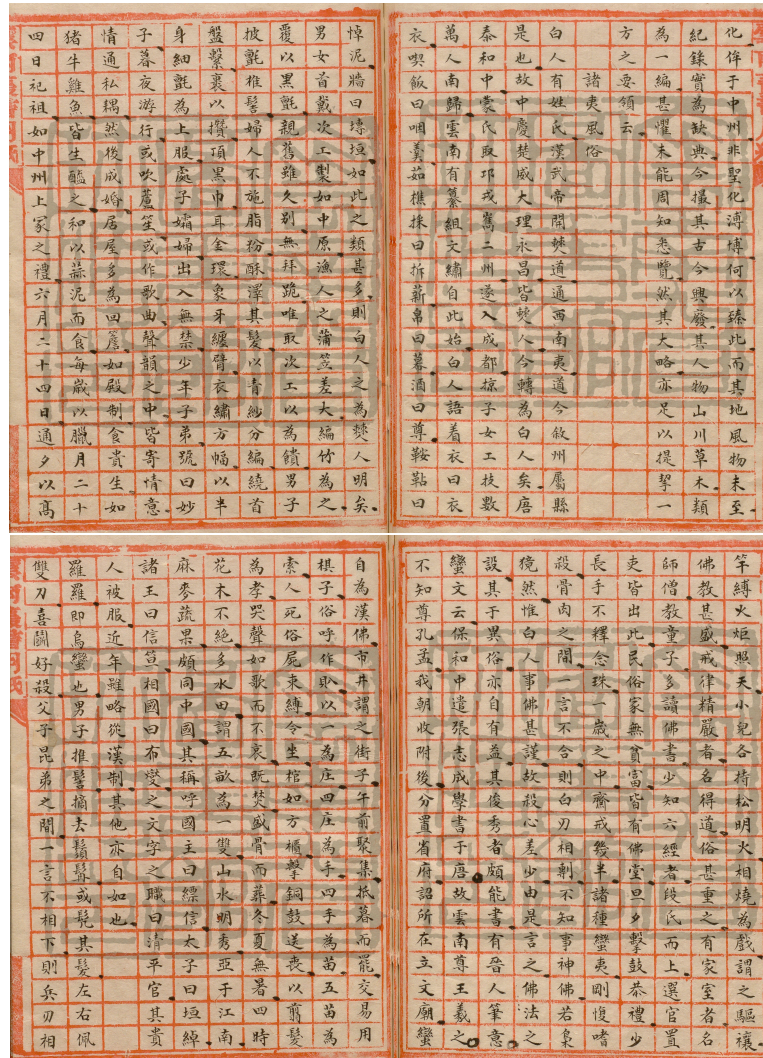 化侔于中州非聖化溥博何以臻此而其地風物未至
紀錄實為缺典今撮其古今興廢其人物山川草木類
為一編甚懼未能周知悉覽然其大略亦足以提挈一
方之要領云
諸夷風俗
白人有姓氏漢武帝開僰道通西南夷道今敘州屬縣
是也故中慶楚威大理永昌皆僰人今轉為白人矣唐
泰和中蒙氏取邛戎嶲二州遂入成都掠子女工技數
萬人南歸雲南有纂組文繡自此始白人語着衣曰衣
衣喫飯曰咽羹茹樵採曰拆薪帛曰幕酒曰尊鞍鞊曰
悼泥墻曰塼垣如此之類甚多則白人之為僰人明矣
男女首戴次工製如中原漁人之蒲笠差大編竹為之
覆以黑氈親舊雖久別無拜跪唯取次工以為饋男子
披氈椎髻婦人不施脂粉酥澤其髮以青紗分編繞首
盤繫裹以攢頂黑巾耳金環象牙纏臂衣繡方幅以半
身細氈為上服處子孀婦出入無禁少年子弟號曰妙
子暮夜游行或吹蘆笙或作歌曲聲韻之中皆寄情意
情通私耦然後成婚居屋多為回簷如殿制食貴生如
猪牛雞魚皆生醢之和以蒜泥而食每歲以臘月二十
四日祀祖如中州上冢之禮六月二十四日通夕以高
竿縛火炬照天小兒各持松明火相燒為戲謂之驅禳
佛教甚盛戒律精嚴者名得道俗甚重之有家室者名
師僧教童子多讀佛書少知六經者段氏而上選官置
吏皆出此民俗家無貧富皆有佛堂旦夕擊鼓恭禮少
長手不釋念珠一歲之中齋戒幾半諸種蠻夷剛愎嗜
殺骨肉之間一言不合則白刃相剸不知事神佛若梟
獍然惟白人事佛甚謹故殺心差少由是言之佛法之
設其于異俗亦自有益其俊秀者頗能書有晉人筆意
蠻文云保和中遣張志成學書于唐故雲南尊王羲之
不知尊孔孟我朝收附後分置省府詔所在立文廟蠻
自為漢佛市井謂之街子午前聚集抵暮而罷交易用
棋子俗呼作以一為庄四庄為手四手為苗五苗為
索人死俗屍束縛令坐棺如方櫃擊銅鼓送喪以剪髮
為孝哭聲如歌而不哀既焚盛骨而葬冬夏無暑四時
花木不絕多水田謂五畝為一雙山水明秀亞于江南
麻麥蔬果頗同中國其稱呼國主曰縹信太子曰坦綽
諸王曰信苴相國曰布燮之文字之職曰清平官其貴
人被服近年雖略從漢制其他亦自如也
羅羅即烏蠻也男子推髻摘去鬚髯或髡其髮左右佩
雙刀喜鬬好殺父子昆弟之間一言不相下則兵刃相